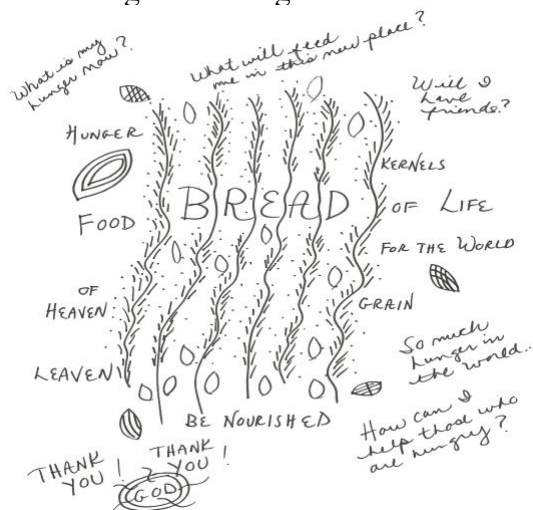 What is my
hunger now?
What will feed
me in this new place?
Will I
have
friends?
HUNGER
KERNELS
BREAD
OF LIFE
FOOD
FOR THE WORLD
OF
HEAVEN
GRAIN
LEAVEN
So much
hunger in
the world..
BE NOURISHED
How can I
help thosd who
are hungry?
THANK
YOU!
THANK
YOU!
GOD